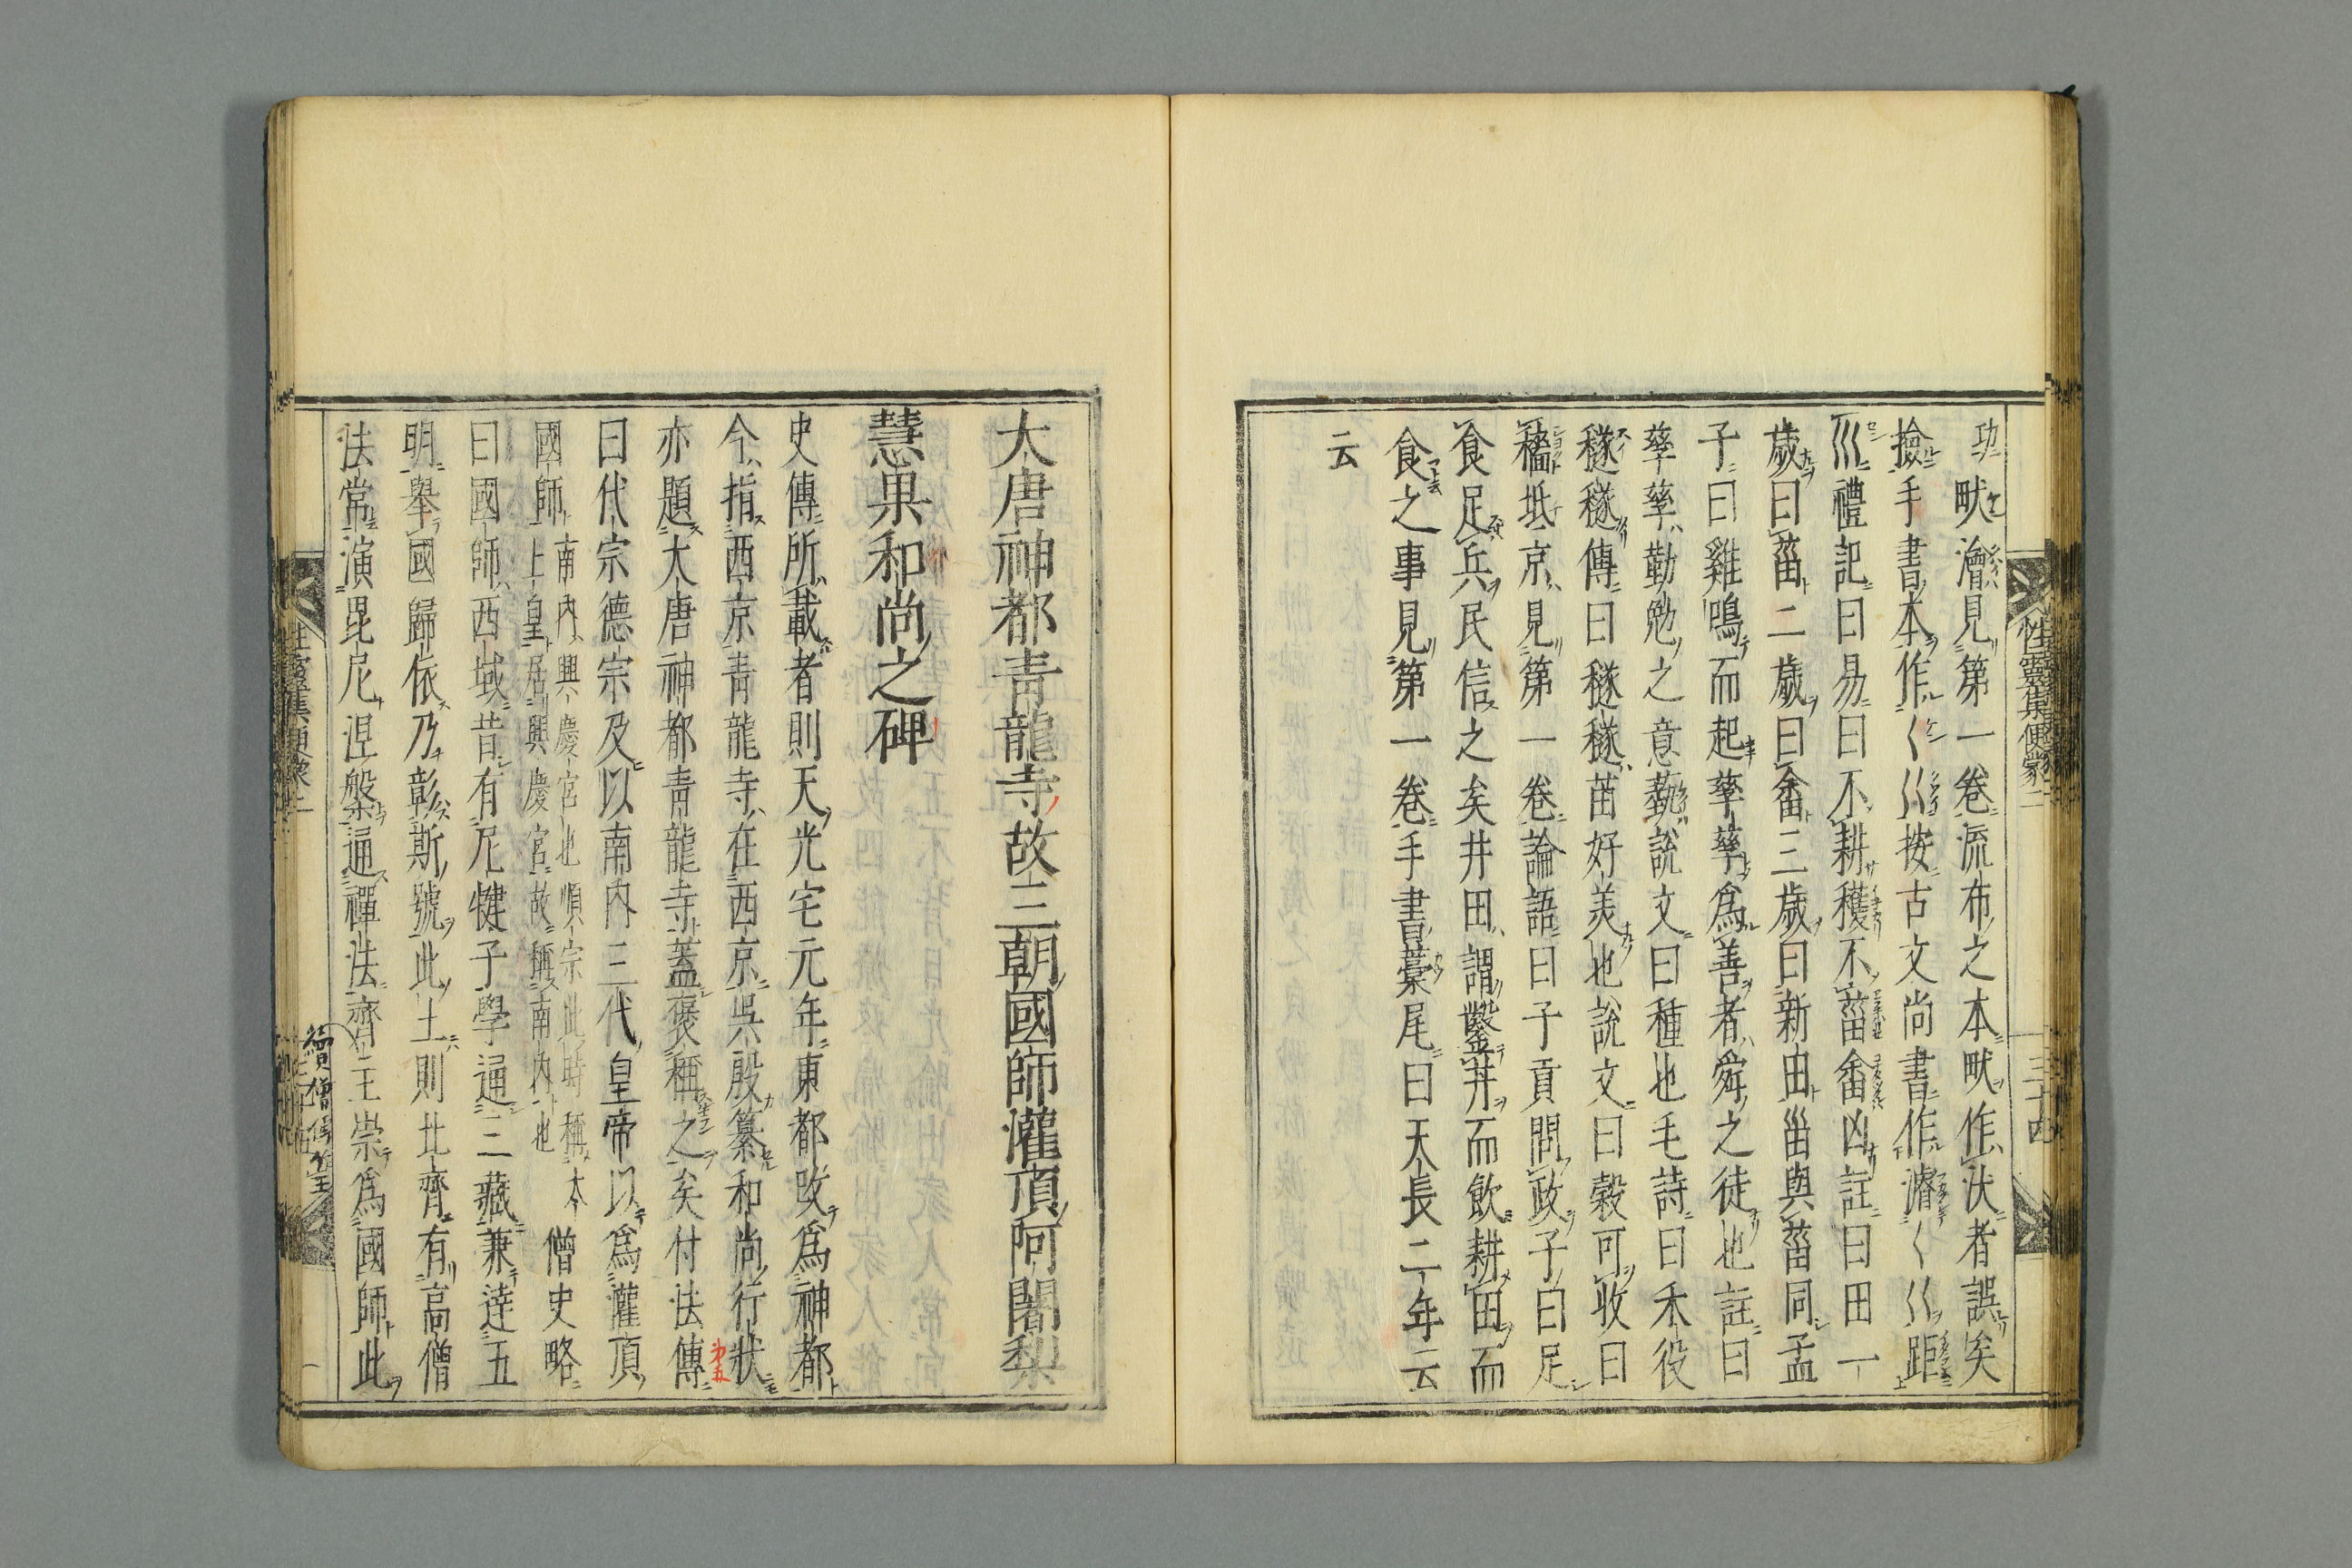 功畎澮見第一卷流布之本畎作汱者誤矣
撿手書本作〱巜按古文尚書作濬〱巜距
巛禮記曰易曰不耕穫不菑畬凶註曰田一
歲曰菑二歲曰畬三歲曰新田甾與菑同孟
子曰雞鳴而起孳孳爲善者舜之徒也註曰
孳孳勤勉之意蓺說文曰種也毛詩曰禾役
穟穟傳曰穟穟苗好美也說文曰穀可收曰
穡坻京見第一卷論語曰子貢問政子曰足
食足兵民信之矣井田謂鑿井而飲耕田而
食之事見第一卷手書藁尾曰天長二年云
云
性靈集便蒙二
三十四
大唐神都青龍寺故三朝國師灌頂阿闍梨
慧果和尚之碑
史傳所載者則天光宅元年東都改爲神都
今指西京青龍寺在西京吳殷纂和尚行狀
亦題大唐神都青龍寺蓋褒稱之矣付法傳
第五
曰代宗德宗及以南內三代皇帝以爲灌頂
國師南內興慶宮也順宗此時稱太
上皇居興慶宮故稱南內也僧史略
曰國師西域昔有尼犍子學通三藏兼達五
明舉國歸依乃彰斯號此土則北齊有高僧
法常演毘尼涅槃通禪法齊王崇爲國師此
性靈集便蒙二
續僧傳